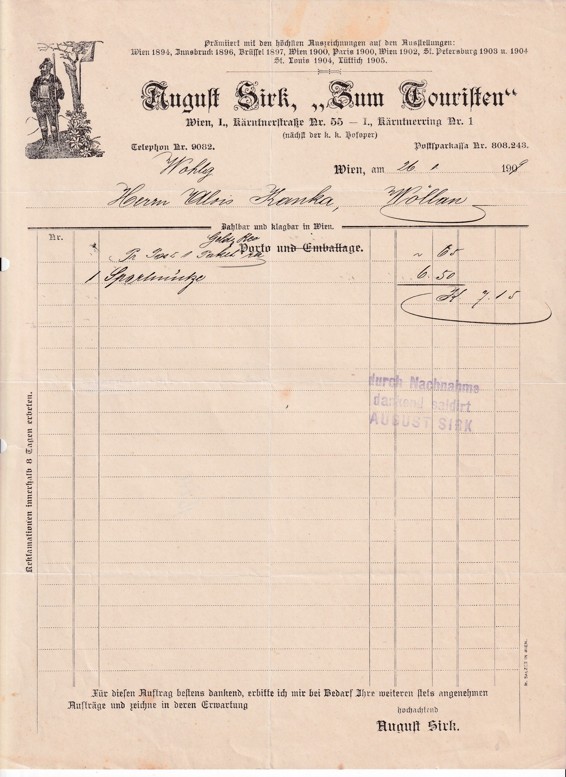 Prämiiert mit den höchsten Auszeichnungen auf den Ausstellungen:
Wien 1894, Innsbruck 1896, Brüssel 1897, Wien 1900, Paris 1900, Wien 1902, St. Petersburg 1903 u. 1904
St. Louis 1904, Lüttich 1905.
August Sirk, „Zum Touristen“
Wien, I., Kärntnerstraße Nr. 55 — I., Kärntnerring Nr. 1
(nächst der k. k. Hofoper)
Telephon Nr. 9082.
Postsparkassa Nr. 808.243.
Wohlg
Wien, am 26 1 190
Herrn Alois Kanka, Wöllan
Zahlbar und klagbar in Wien.
Nr.
Porto und Emballage. 65
1 Sportmütze 6.50
K 7.15
durch Nachnahme
dankend saldirt
AUGUST SIRK
Reklamationen innerhalb 8 Tagen erbeten.
Für diesen Auftrag bestens dankend, erbitte ich mir bei Bedarf Ihre weiteren stets angenehmen
Aufträge und zeichne in deren Erwartung
hochachtend
August Sirk.